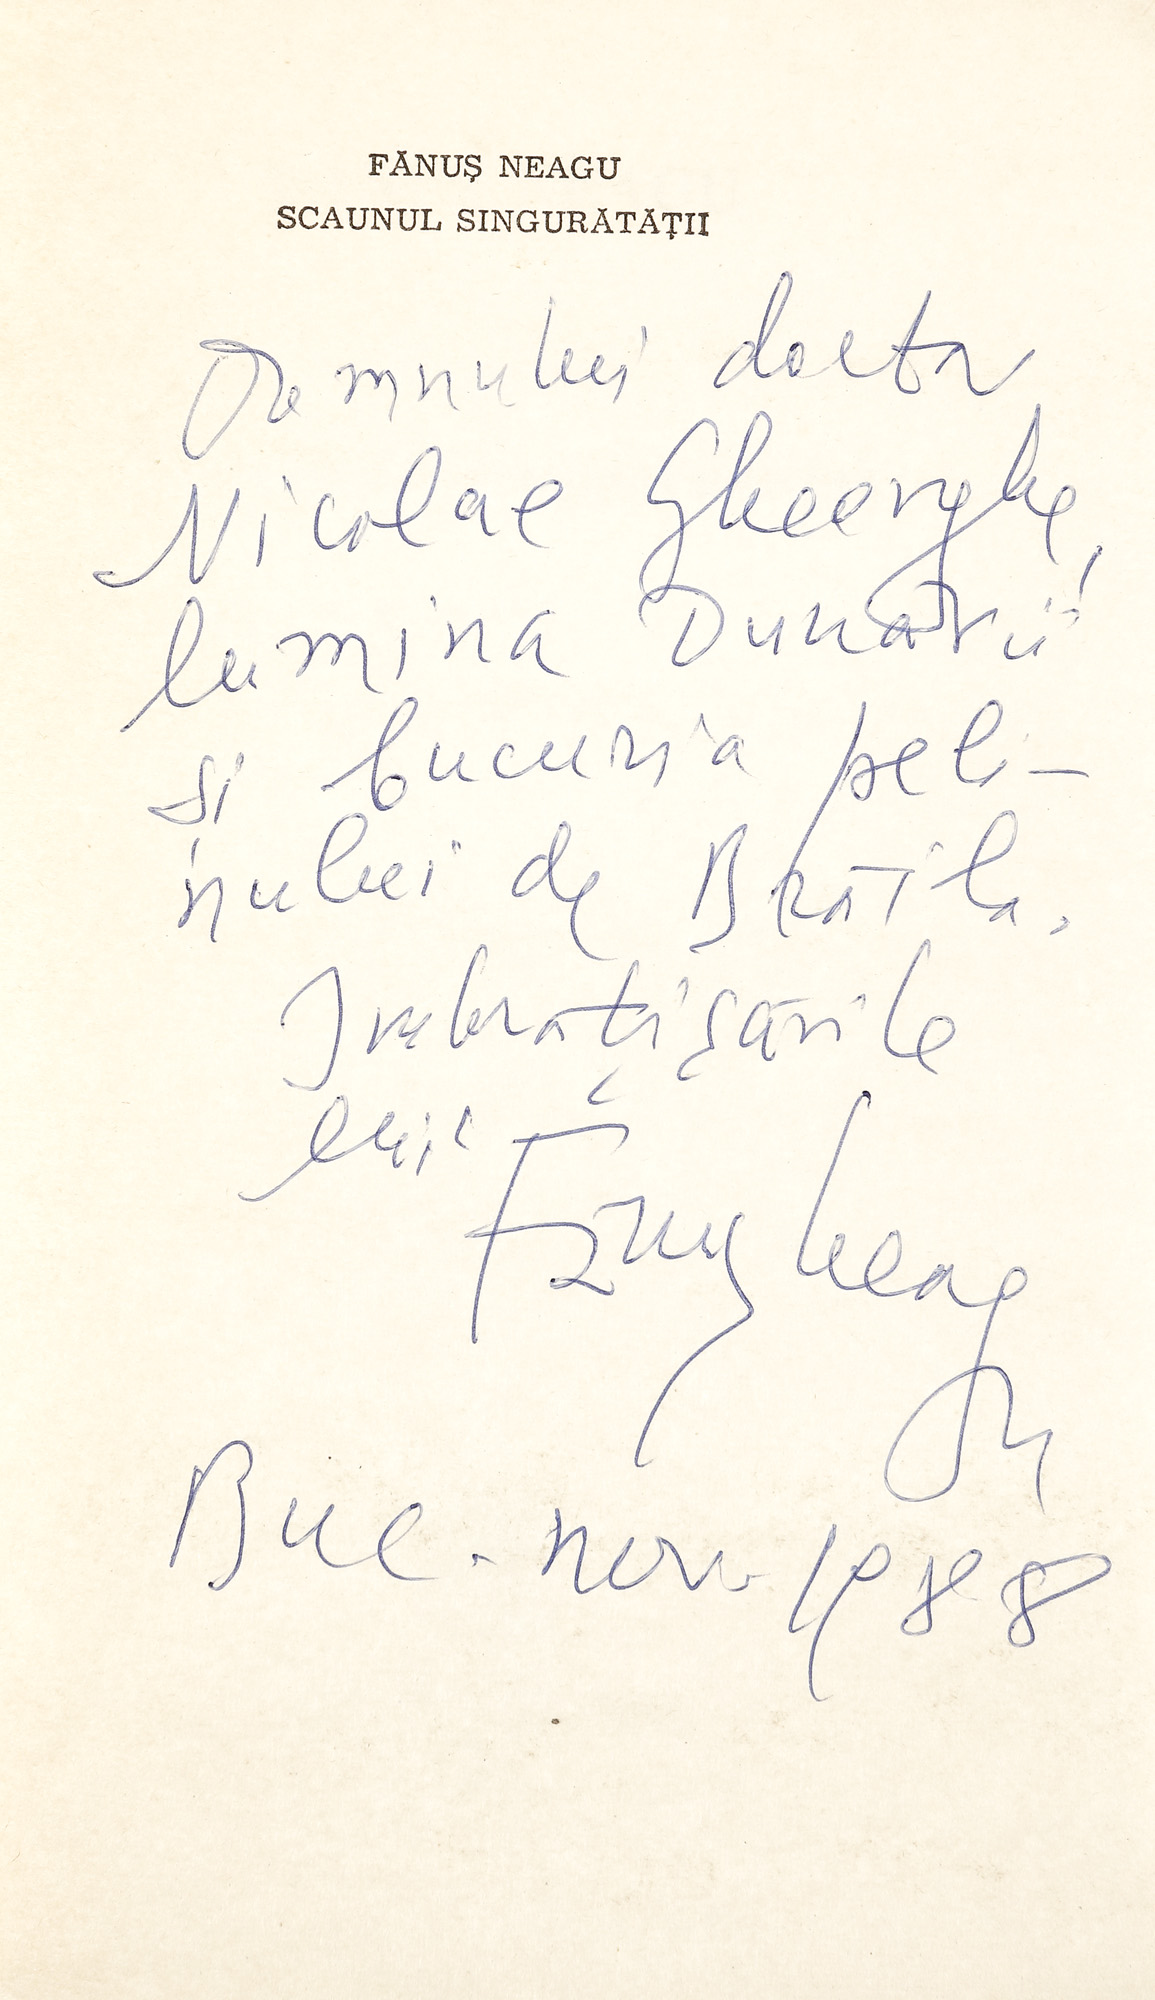 FĂNUȘ NEAGU
SCAUNUL SINGURĂTĂȚII
Domnului doctor
Nicolae Gheorghe,
lumina Dunării
si bucuria peli-
nului de Brăila.
Imbratișările
lui
Fănuș Neagu
Buc. nov 1988